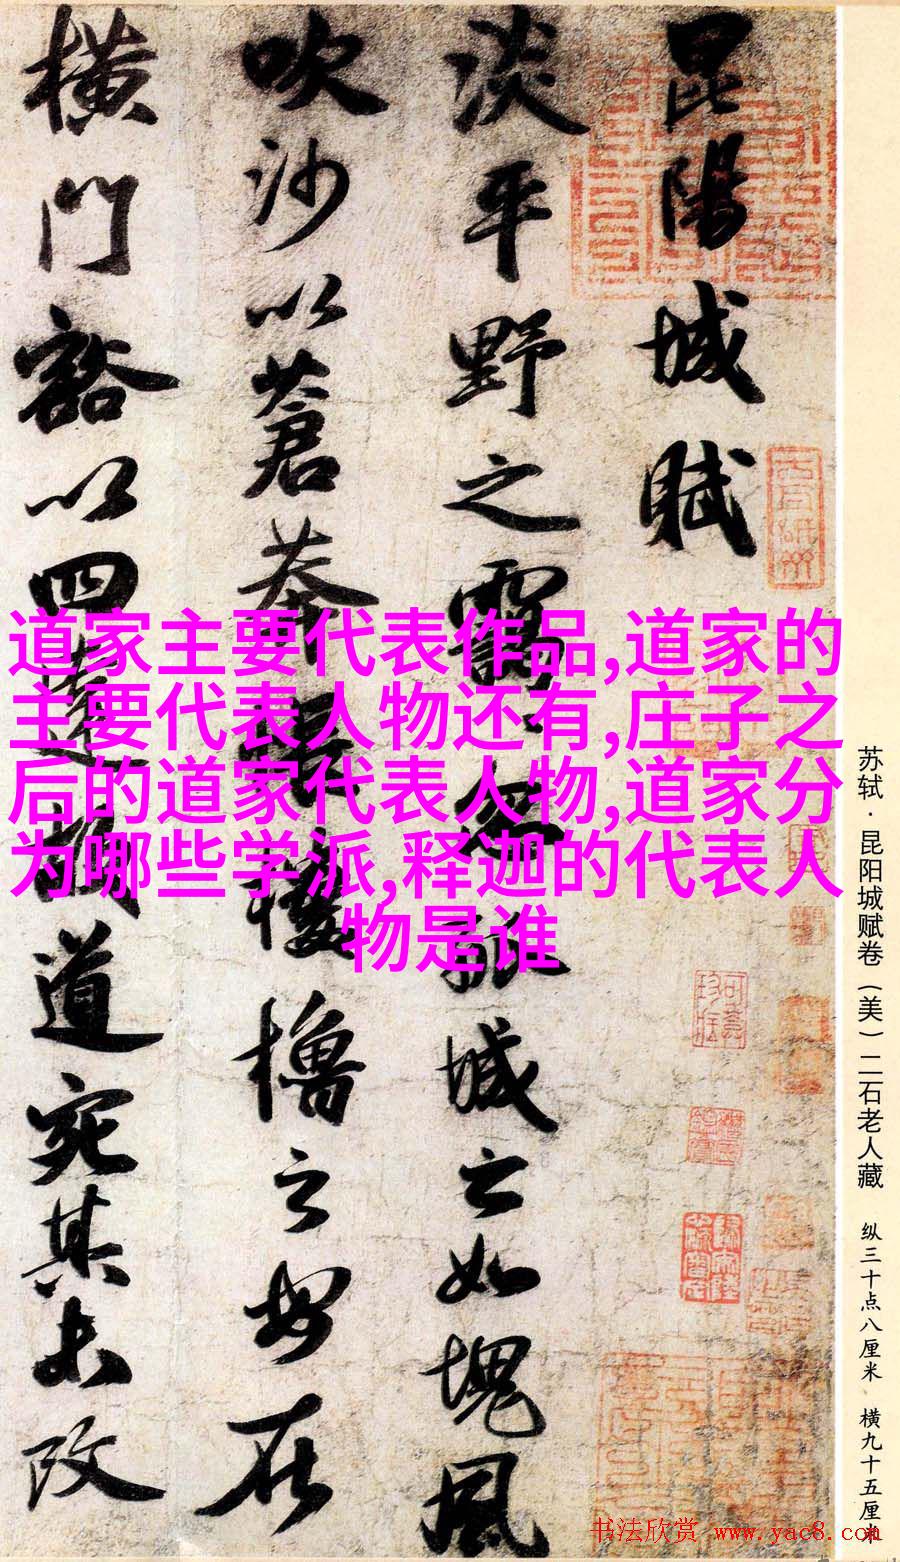 道家主要代表作品,道家的
主要代表人物还有,庄子之
后的道家代表人物,道家分
为哪些学派,释迦的代表人
物是谁
苏轼·昆阳城赋卷（美）二石老人藏 纵三十点八厘米 横九十五厘米
昆陽城賦
淡平野之靄〻忽孤城之如塊風
吹沙以蒼莽悵樓櫓之安在
橫門豁以四達故道宛其未改
书法欣赏 www.yac8.com